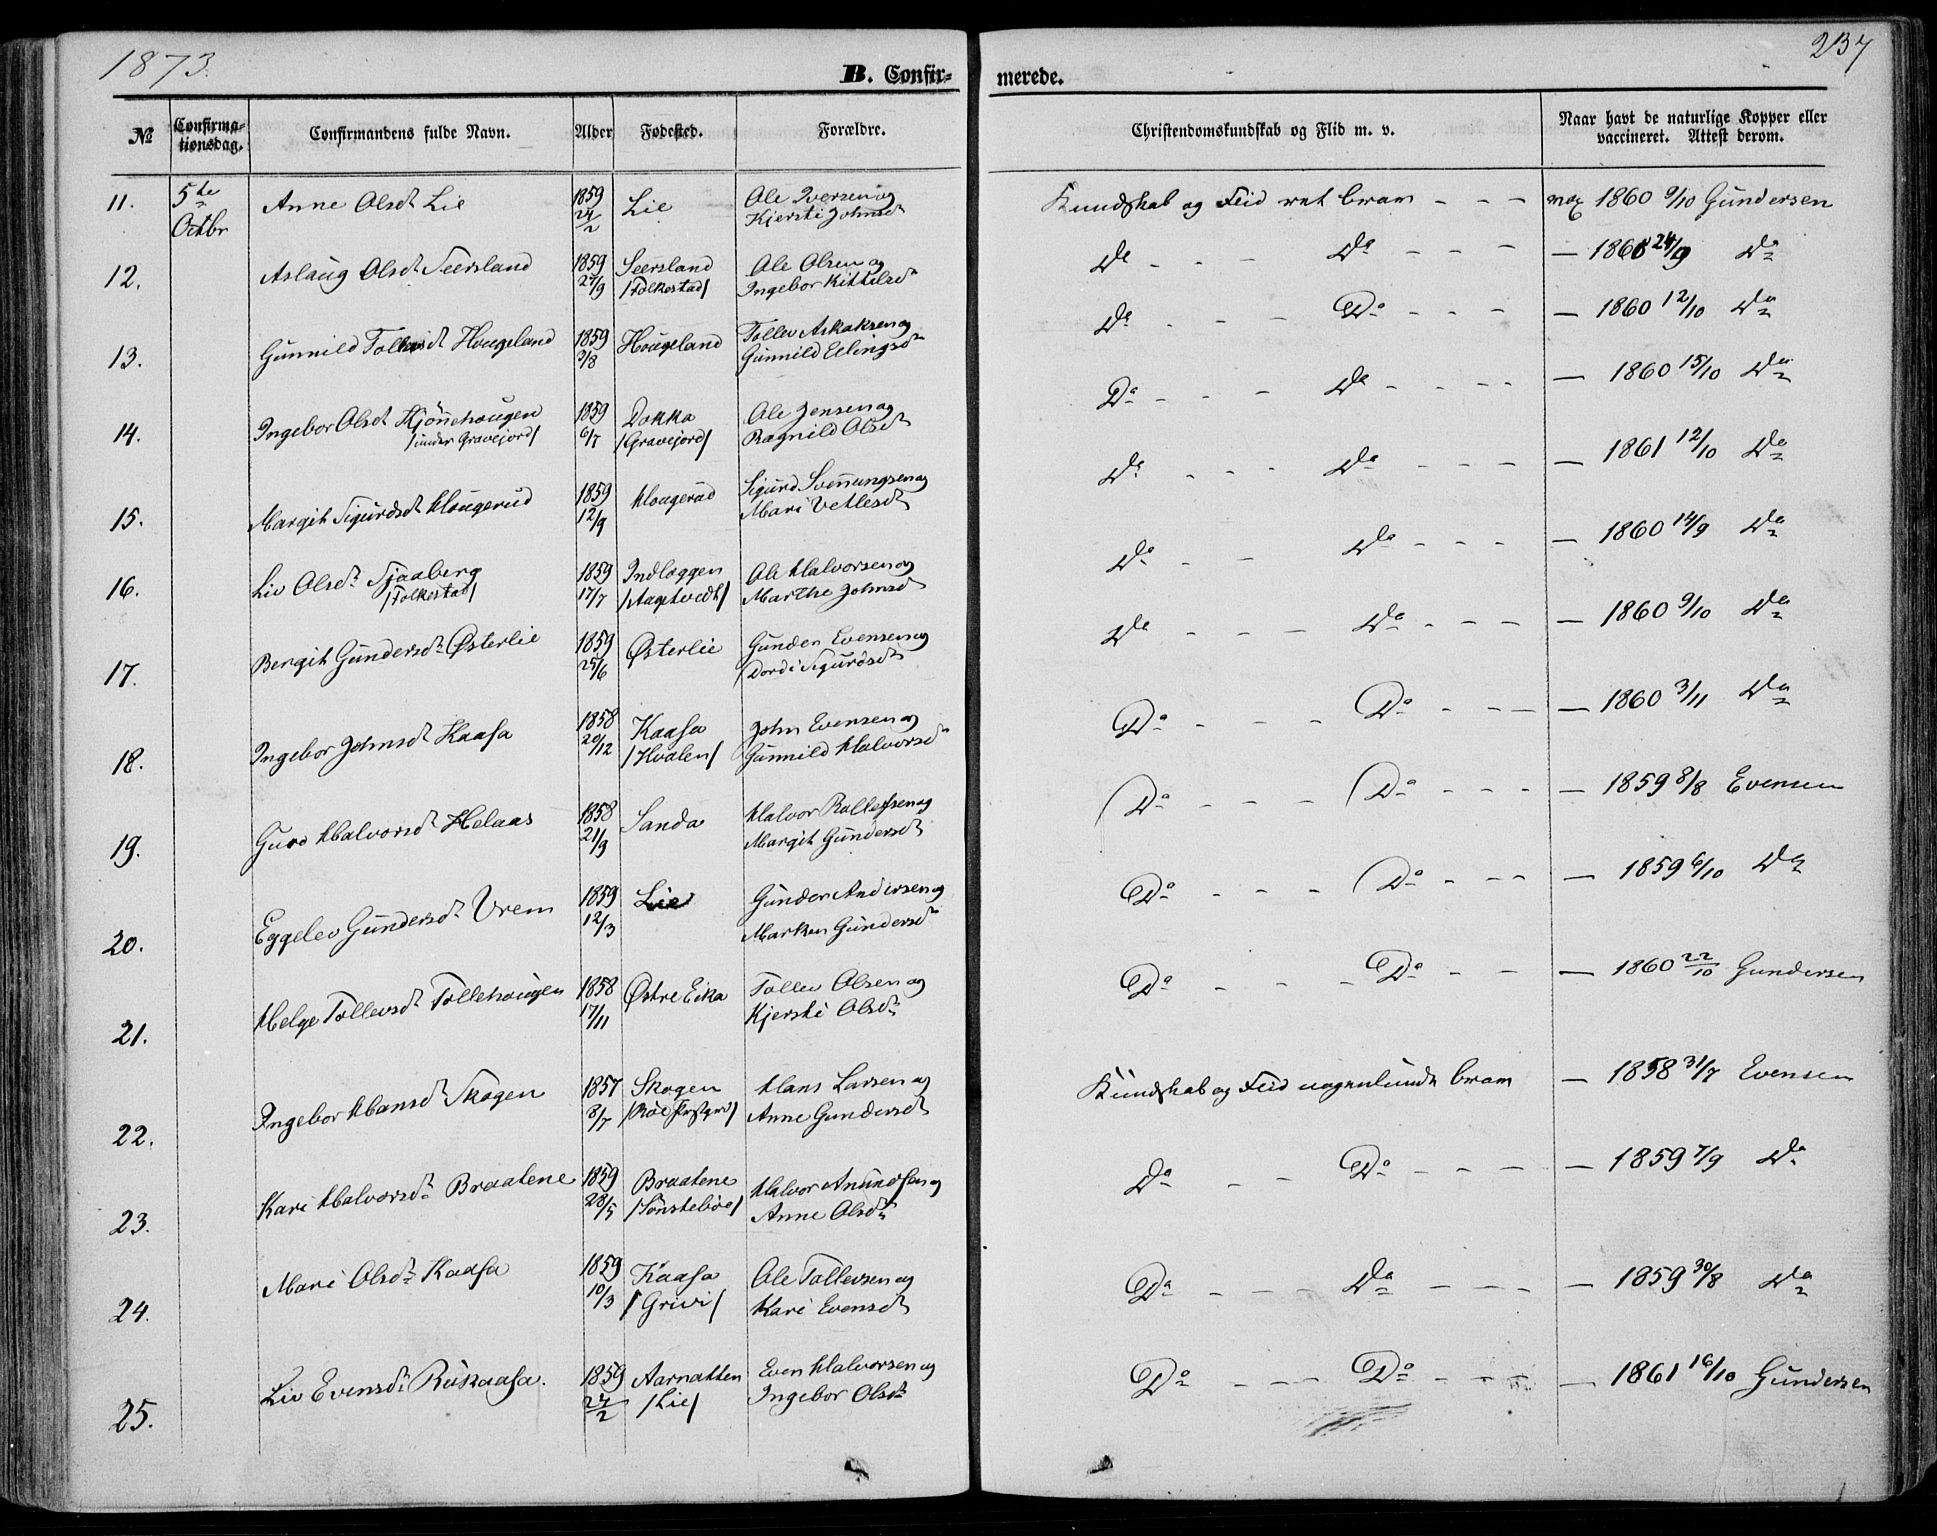 1873.
237
B. Confirmerede.
№ Confirmationsdag. Confirmandens fulde Navn. Alder Fødested. Forældre. Christendomskundskab og Flid m. v. Naar havt de naturlige Kopper eller vaccineret. Attest derom.
11. 5te Octbr Anne Olsdt Lie 1859 24/2 Lie Ole Iversen og Kjersti Johnsdt Kundskab og Flid ret bram - - - vax 1860 9/10 Gundersen
12. Aslaug Olsdt Seersland 1859 27/9 Seersland /Folkestad/ Ole Olsen og Ingebor Kittilsdt Do - - - Do - - - — 1861 24/9 Do
13. Gunnild Tollevsdt Hougeland 1859 3/8 Hougeland Tollev Aslaksen og Gunnild Ellingsdt Do - - - Do - - - — 1860 12/10 Do
14. Ingebor Olsdt Kjønnehougen /under Gravejord/ 1859 6/7 Dokka /Gravejord/ Ole Jensen og Ragnild Olsdt Do - - - Do - - - - — 1860 15/10 Do
15. Margit Sigurdsdt Hougerud 1859 12/9 Hougerud Sigurd Svennungsen og Mari Vetlesdt Do - - - Do - - - — 1861 12/10 Do
16. Liv Olsdt Sjaaberg /Folkestad/ 1859 17/7 Indlæggen /Aagetvedt/ Ole Halvorsen og Marthe Johnsdt Do - - Do - - - — 1860 14/9 Do
17. Bergit Gundersdt Østerlie 1859 25/6 Østerlie Gunder Evensen og Dordi Sigurdsdt Do - - - Do - - - — 1860 9/10 Do
18. Ingebor Johnsdt Kaasa 1858 20/12 Kaasa /Hvalen/ John Evensen og Gunnild Halvorsdt Do - - - Do - - - — 1860 3/11 Do
19. Guro Halvorsdt Helaas 1858 21/9 Sanda Halvor Rollefsen og Margit Gundersdt Do - - - Do - - - — 1859 8/8 Evensen
20. Eggelev Gundersdt Vrem 1859 12/3 Lie Gunder Andersen og Marken Gundersdt Do - - - Do - - - — 1859 6/10 Do
21. Helge Tollevsdt Tollehougen 1858 17/11 Østre Eika Tollev Olsen og Kjersti Olsdt Do - - - Do - - — 1860 22/10 Gundersen
22. Ingebor Hansdt Skogen 1857 8/7 Skogen Hans Larsen og Anne Gundersdt Kundskab og Flid nogenlunde bram — 1858 31/7 Evensen
23. Kari Halvorsdt Braatene 1859 28/5 Braatene /Sønstebøe/ Halvor Anundsen og Anne Olsdt Do - - Do - - - — 1859 7/9 Do
24. Mari Olsdt Kaasa 1859 10/3 Kaasa /Grivi/ Ole Tollevsen og Kari Evensdt Do - - - Do - - - — 1859 30/8 Do
25. Liv Evensdt Rukaasa. 1859 27/2 Aarnatten /Lie/ Even Halvorsen og Ingebor Olsdt Do - - - Do - - - — 1861 16/10 Gundersen